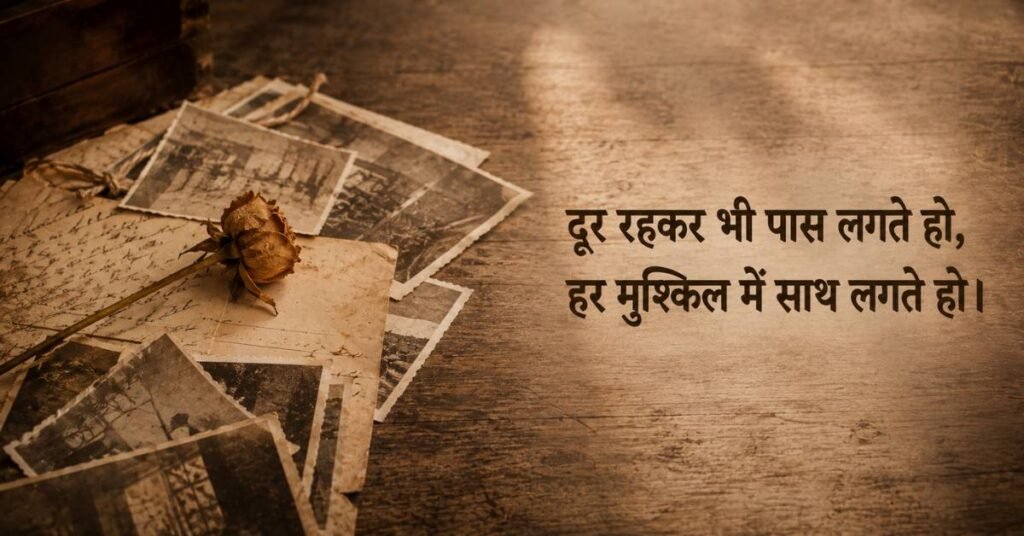 दूर रहकर भी पास लगते हो,
हर मुश्किल में साथ लगते हो।